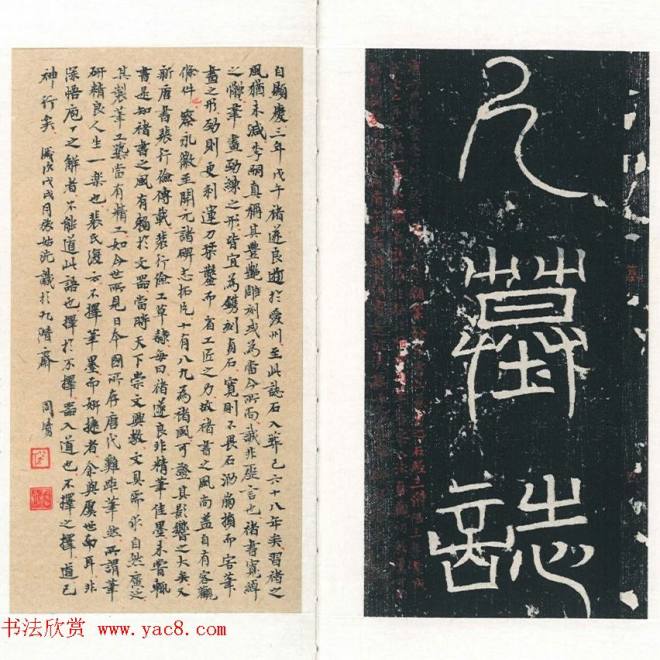 自顯慶三年戊午褚遂良逝於愛州至此誌石入葬已六十八年矣習褚之
風猶未減李嗣真稱其豐艷雕刻或為當今所尚識非虛言也褚書寬綽
之筆畫勁練之形皆宜為鐫刻貞石寬則不畏石泐崩損而害筆
畫之形勁則更利運刀琢鑿而省工匠之乃故褚書之風尚盖自有客觀
條件察永徽至開元諸碑志拓片十有八九為褚風可證其影響之大矣又
新唐書裴行儉傳載裴行儉工草隸每曰褚遂良非精筆佳墨未嘗輒
書是知褚書之風有賴於文器當時天下崇文興教文具求自然廣泛
其製筆工藝當有精工如今世所見日本國所存唐代雞距筆然所謂筆
研精良人生一樂也裴氏復云不擇筆墨而妍捷者余與虞世南耳非
深悟庖丁之解者不能道此語也擇於不擇器入道也不擇之擇道已
神行矣歲次戊戌識於九晴齋
墓
誌
书法欣赏 www.yac8.com